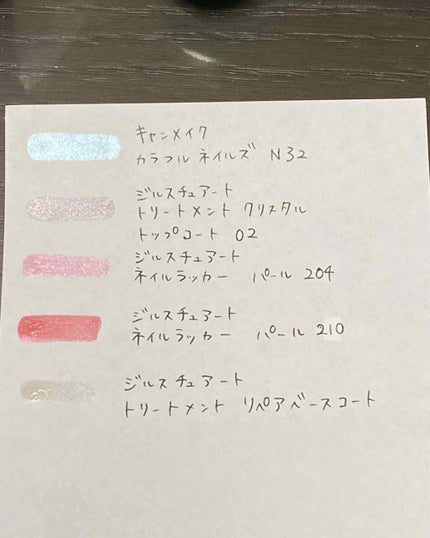 キャンメイク
カラフルネイルズ N32
ジルスチュアート
トリートメント クリスタル
トップコート 02
ジルスチュアート
ネイルラッカー パール 204
ジルスチュアート
ネイルラッカー パール 210
ジルスチュアート
トリートメント リペアベースコート